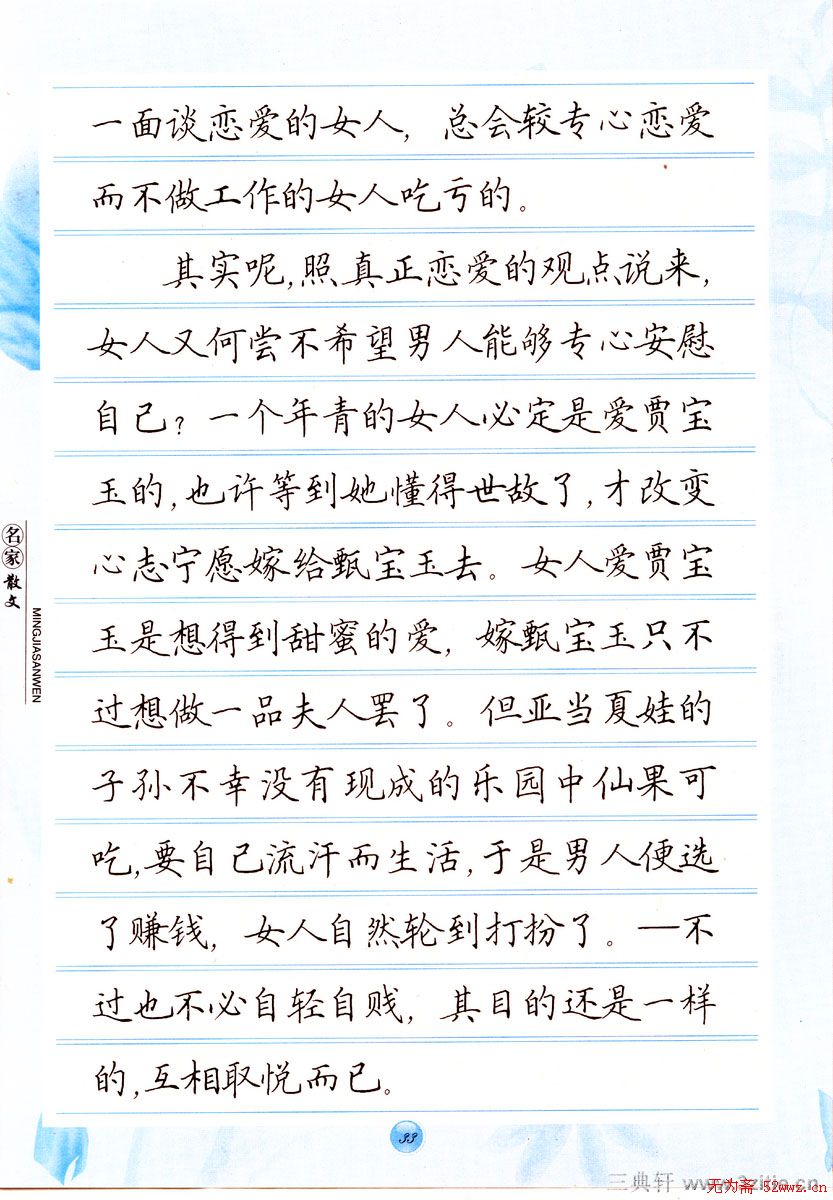 一面谈恋爱的女人，总会较专心恋爱
而不做工作的女人吃亏的。
其实呢，照真正恋爱的观点说来，
女人又何尝不希望男人能够专心安慰
自己？一个年青的女人必定是爱贾宝
玉的，也许等到她懂得世故了，才改变
心志宁愿嫁给甄宝玉去。女人爱贾宝
玉是想得到甜蜜的爱，嫁甄宝玉只不
过想做一品夫人罢了。但亚当夏娃的
子孙不幸没有现成的乐园中仙果可
吃，要自己流汗而生活，于是男人便选
了赚钱，女人自然轮到打扮了。—不
过也不必自轻自贱，其目的还是一样
的，互相取悦而已。
名家散文
MINGJIASANWEN
33
三典轩 www.3zitie.cn
无为斋·52wwz.cn